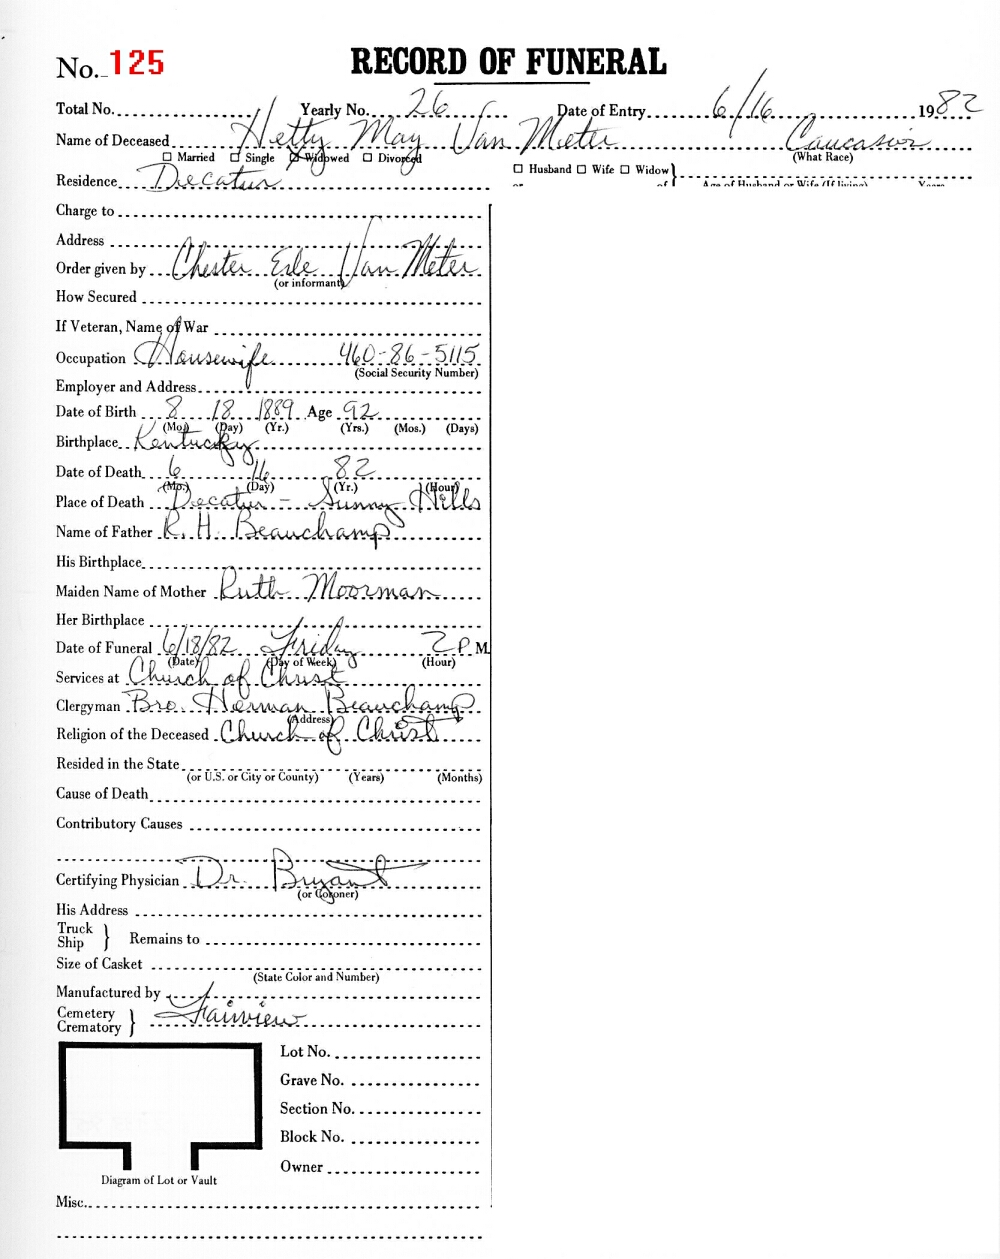 No. 125 RECORD OF FUNERAL
Total No. Yearly No. 26 Date of Entry 6/16 1982
Name of Deceased Hetty May Van Meter Caucasion
☐ Married ☐ Single ☒ Widowed ☐ Divorced (What Race)
Residence Decatur ☐ Husband ☐ Wife ☐ Widow }
or of Age of Husband or Wife (If living) Years
Charge to
Address
Order given by Chester Erle Van Meter
(or informant)
How Secured
If Veteran, Name of War
Occupation Housewife 460-86-5115
(Social Security Number)
Employer and Address
Date of Birth 8 18 1889 Age 92
(Mo.) (Day) (Yr.) (Yrs.) (Mos.) (Days)
Birthplace Kentucky
Date of Death 6 16 82
(Mo.) (Day) (Yr.) (Hour)
Place of Death Decatur - Sunny Hills
Name of Father R. H. Beauchamp
His Birthplace
Maiden Name of Mother Ruth Moorman
Her Birthplace
Date of Funeral 6/18/82 Friday 2 P M.
(Date) (Day of Week) (Hour)
Services at Church of Christ
Clergyman Bro. Herman Beauchamp
(Address)
Religion of the Deceased Church of Christ
Resided in the State
(or U.S. or City or County) (Years) (Months)
Cause of Death
Contributory Causes
Certifying Physician Dr. Bryant
(or Coroner)
His Address
Truck
Ship } Remains to
Size of Casket
(State Color and Number)
Manufactured by
Cemetery
Crematory } Fairview
Lot No.
Grave No.
Section No.
Block No.
Owner
Diagram of Lot or Vault
Misc.